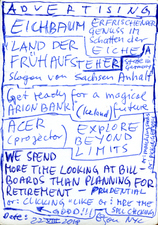 ADVERTISING
EICHBAUM ERFRISCHENDER
GENUSS IM
Schatten der
EICHE
LAND DER
FRÜHAUFSTEHER
slogan von Sachsen Anhalt
Get ready for a magical
ARION BANK (Iceland) future
ACER
(projector)
EXPLORE
BEYOND
LIMITS
WE SPEND
MORE TIME LOOKING AT BILL-
BOARDS THAN PLANNING FOR
RETIREMENT — PRUDENTIAL
or: CLICKING "LIKE"
GOOD!!!
STILL CHECKING
Date:
NYC